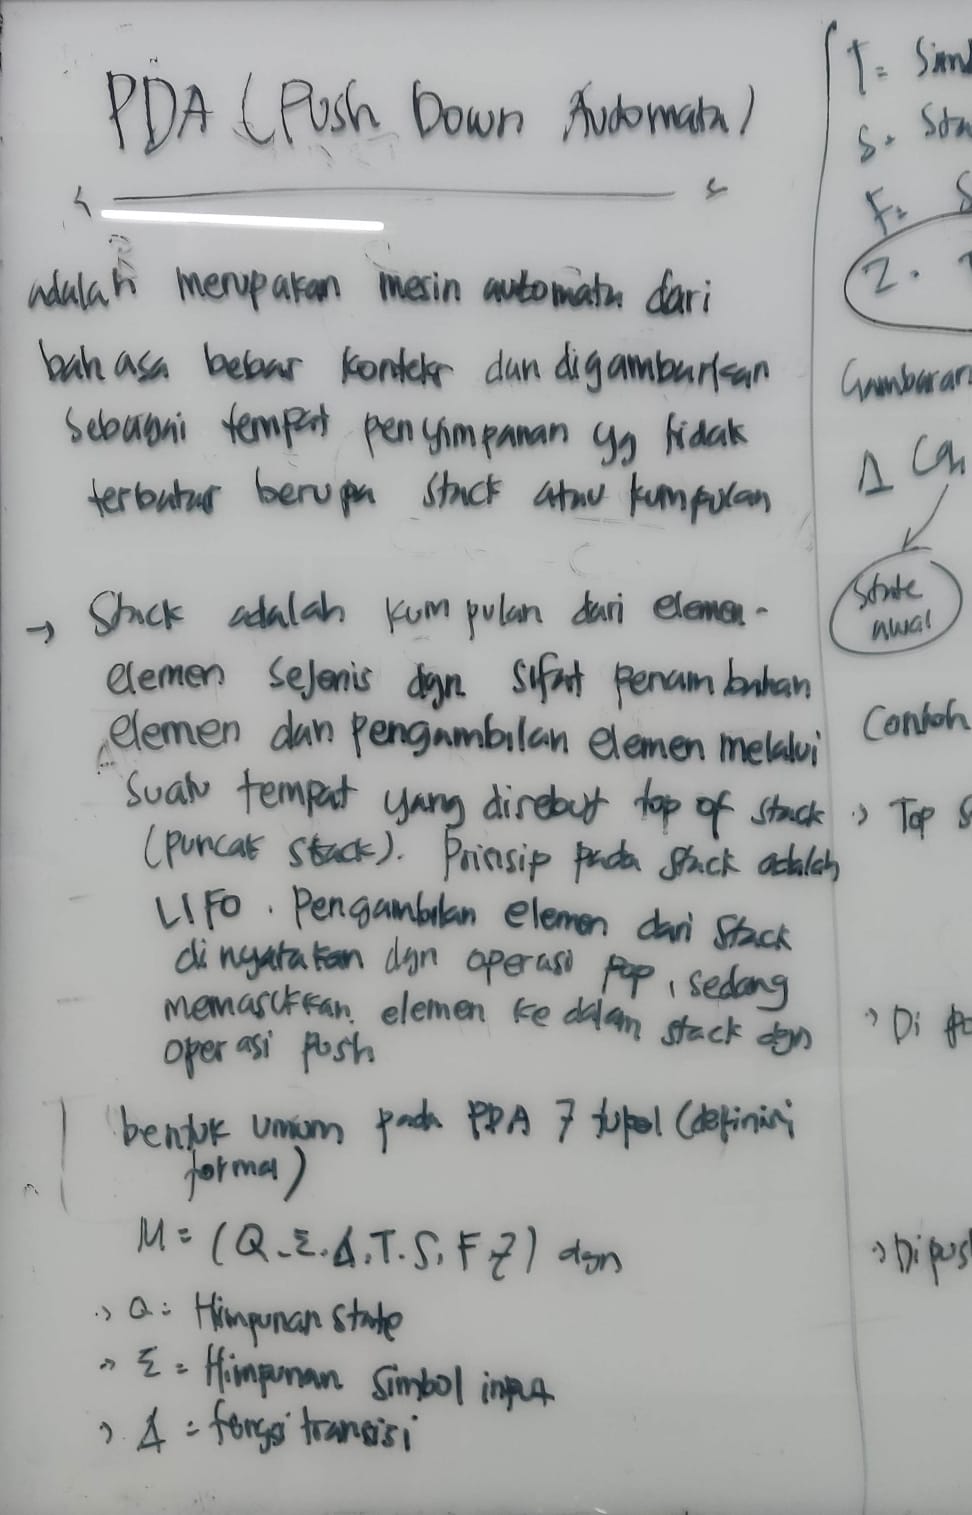 PDA (Push Down Automata)
adalah merupakan mesin automata dari
bahasa bebas konteks dan digambarkan
sebagai tempat penyimpanan yg tidak
terbatas berupa stack atau kumpulan
→ Stack adalah kumpulan dari elemen-
elemen sejenis dgn sifat penambahan
elemen dan pengambilan elemen melalui
suatu tempat yang disebut top of stack
(puncak stack). Prinsip pada stack adalah
LIFO. Pengambilan elemen dari stack
dinyatakan dgn operasi pop, sedang
memasukkan elemen ke dalam stack dgn
operasi push
bentuk umum pada PDA 7 tupel (definisi
formal)
M = (Q, Σ, Δ, T, S, F, Z) dgn
→ Q = Himpunan state
→ Σ = Himpunan simbol input
→ Δ = fungsi transisi
T = Sim
S =
F = S
Z =
Gambaran
Δ
State
awal
Contoh
→ Top S
→ Di
→ Dipus